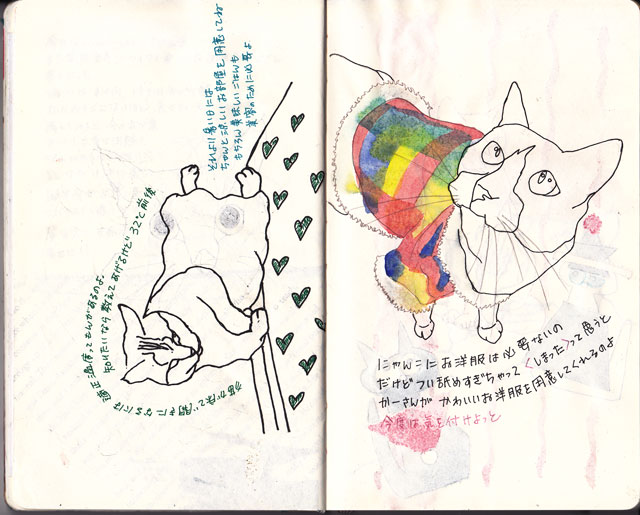 それより暑い日には
ちゃんと涼しいお部屋を用意してね
もちろん美味しいごはんも
美容のために必要よ
適正温度ってもんがあるのよ
知りたいなら教えてあげるけど 32°C 前後
にゃんこにお洋服は必要ないの
だけど つい舐めすぎちゃって くしまったって思うと
かーさんが かわいいお洋服を用意してくれるのよ
今度は気を付けよっと